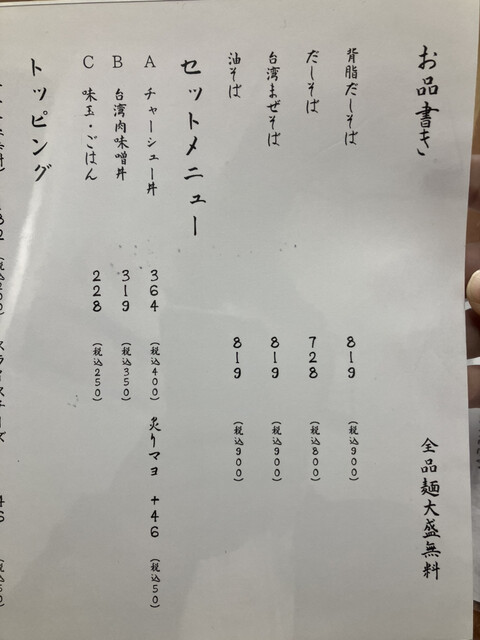 お品書き 全品麺大盛無料
背脂だしそば 819 (税込900)
だしそば 728 (税込800)
台湾まぜそば 819 (税込900)
油そば 819 (税込900)
セットメニュー
A チャーシュー丼 364 (税込400) 炙りマヨ +46 (税込50)
B 台湾肉味噌丼 319 (税込350)
C 味玉・ごはん 228 (税込250)
トッピング
182 (税込200) スライスチーズ 46 (税込50)